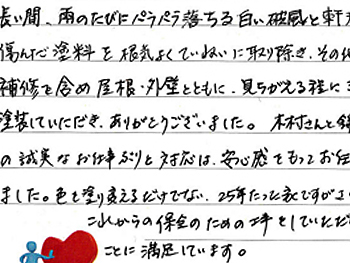 長い間、雨のたびにパラパラ落ちる白い破風と軒
傷んだ塗料を根気よくていねいに取り除き、その他
補修を含め屋根・外壁とともに、見ちがえる程に
塗装していただき、ありがとうございました。木村さんと
の誠実なお仕事ぶりと対応は、安心感をもってお任
ました。色を塗り変えるだけでない、25年たった家ですが
これからの保全のための工事をしていただ
ことに満足しています。